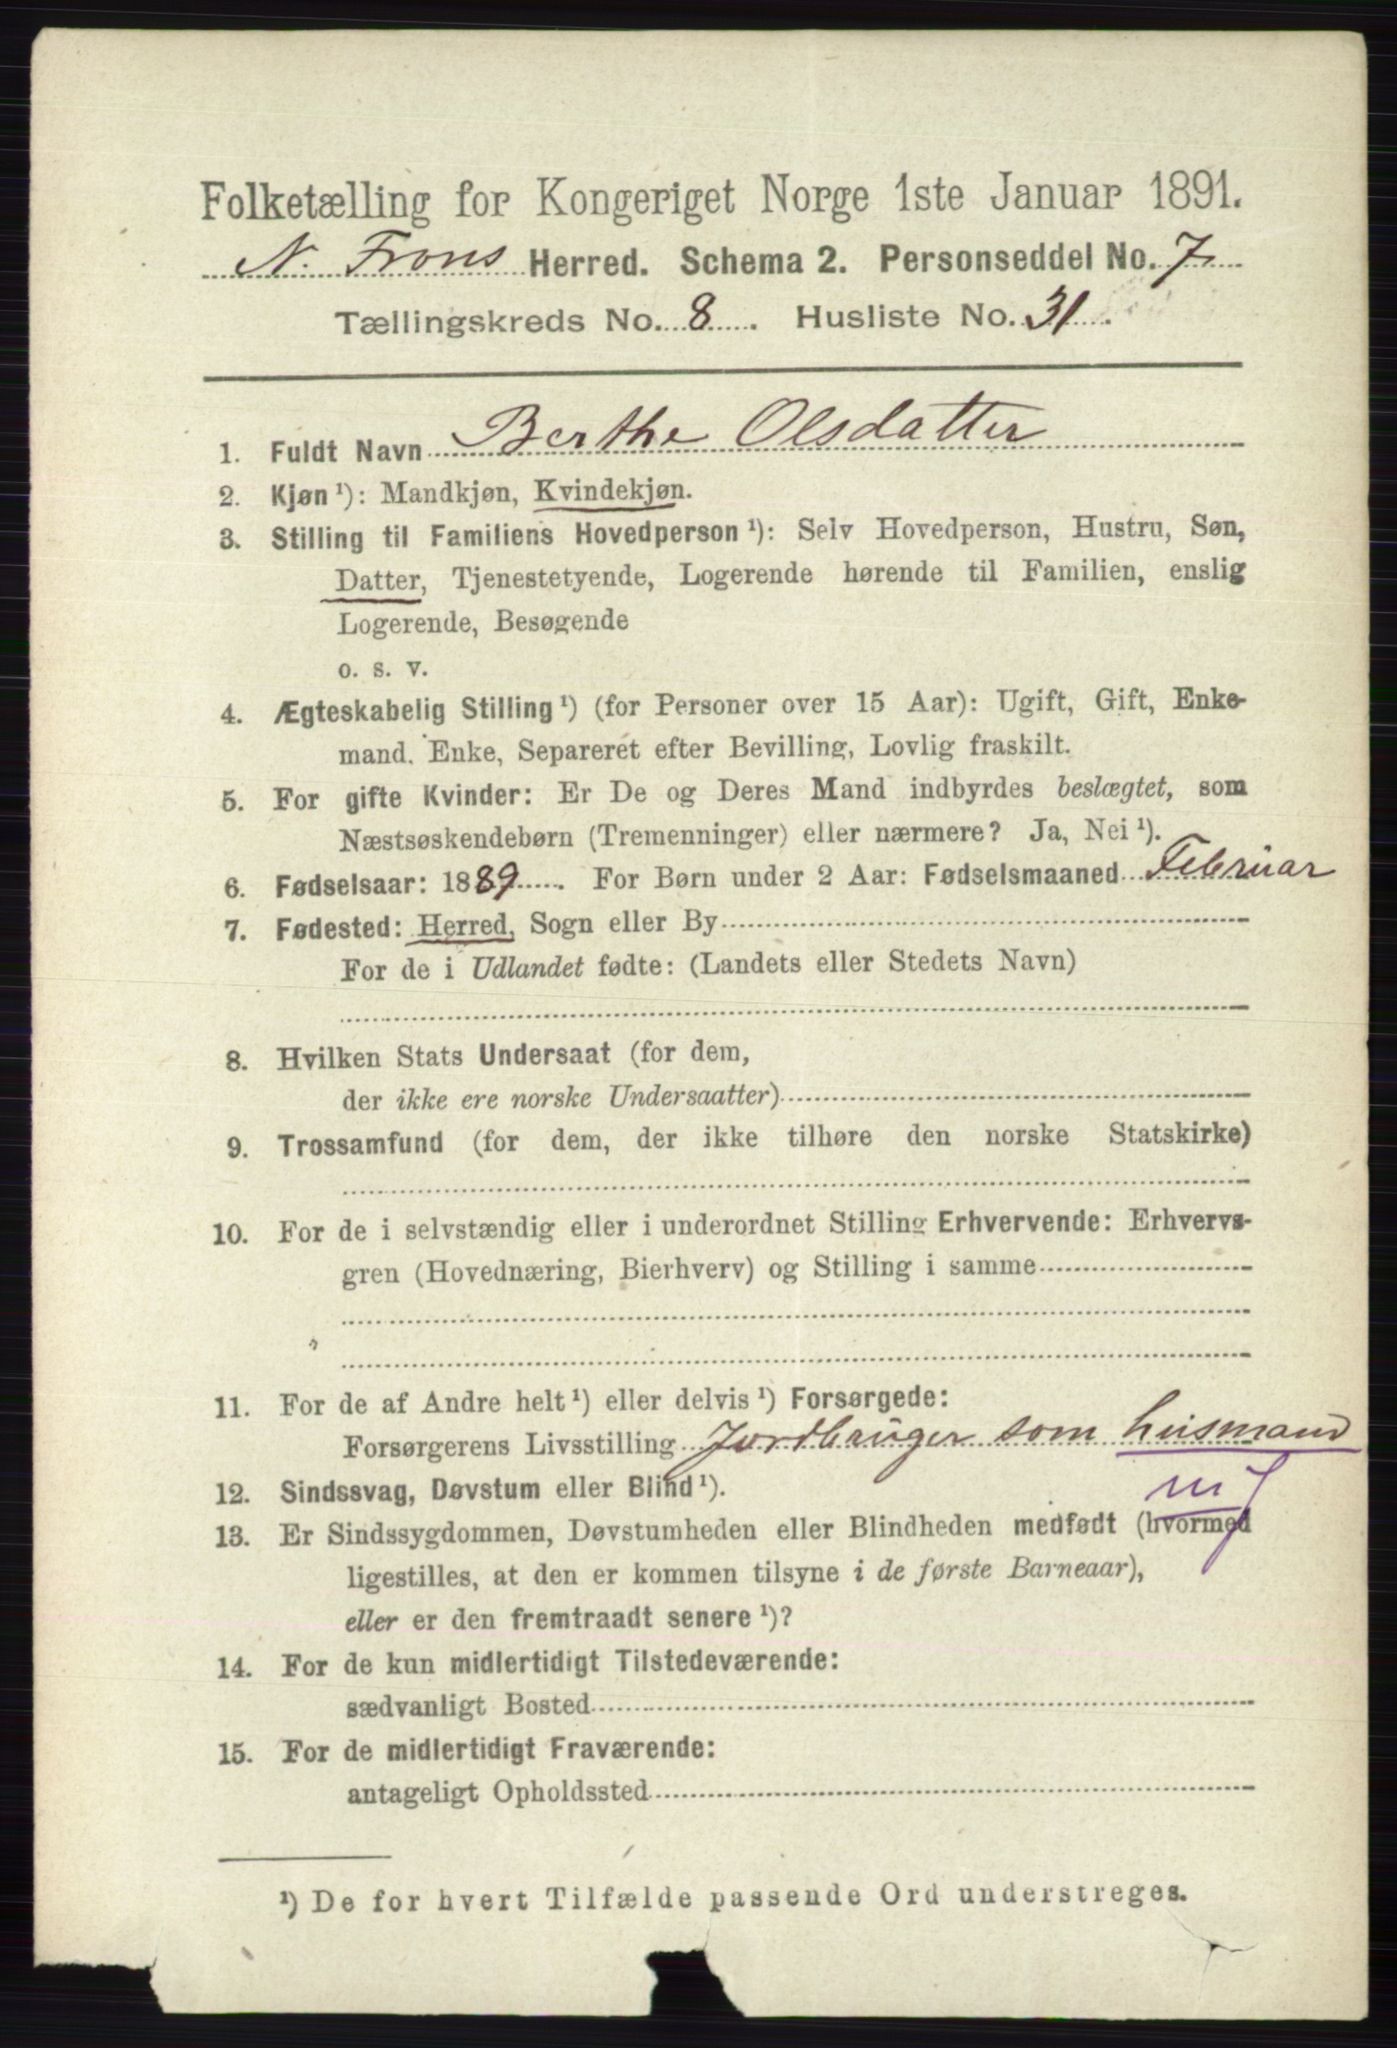 Folketælling for Kongeriget Norge 1ste Januar 1891.
N. Frons Herred. Schema 2. Personseddel No. 7
Tællingskreds No. 8. Husliste No. 31.
1. Fuldt Navn Berthe Olsdatter
2. Kjøn ¹): Mandkjøn, Kvindekjøn.
3. Stilling til Familiens Hovedperson ¹): Selv Hovedperson, Hustru, Søn,
Datter, Tjenestetyende, Logerende hørende til Familien, enslig
Logerende, Besøgende
o. s. v.
4. Ægteskabelig Stilling ¹) (for Personer over 15 Aar): Ugift, Gift, Enke-
mand. Enke, Separeret efter Bevilling, Lovlig fraskilt.
5. For gifte Kvinder: Er De og Deres Mand indbyrdes beslægtet, som
Næstsøskendebørn (Tremenninger) eller nærmere? Ja, Nei ¹).
6. Fødselsaar: 1889. For Børn under 2 Aar: Fødselsmaaned Februar
7. Fødested: Herred, Sogn eller By
For de i Udlandet fødte: (Landets eller Stedets Navn)
8. Hvilken Stats Undersaat (for dem,
der ikke ere norske Undersaatter)
9. Trossamfund (for dem, der ikke tilhøre den norske Statskirke)
10. For de i selvstændig eller i underordnet Stilling Erhvervende: Erhvervs-
gren (Hovednæring, Bierhverv) og Stilling i samme
11. For de af Andre helt ¹) eller delvis ¹) Forsørgede:
Forsørgerens Livsstilling Jordbruger som husmand
12. Sindssvag, Døvstum eller Blind ¹).
mJ
13. Er Sindssygdommen, Døvstumheden eller Blindheden medfødt (hvormed
ligestilles, at den er kommen tilsyne i de første Barneaar),
eller er den fremtraadt senere ¹)?
14. For de kun midlertidigt Tilstedeværende:
sædvanligt Bosted
15. For de midlertidigt Fraværende:
antageligt Opholdssted
¹) De for hvert Tilfælde passende Ord understreges.